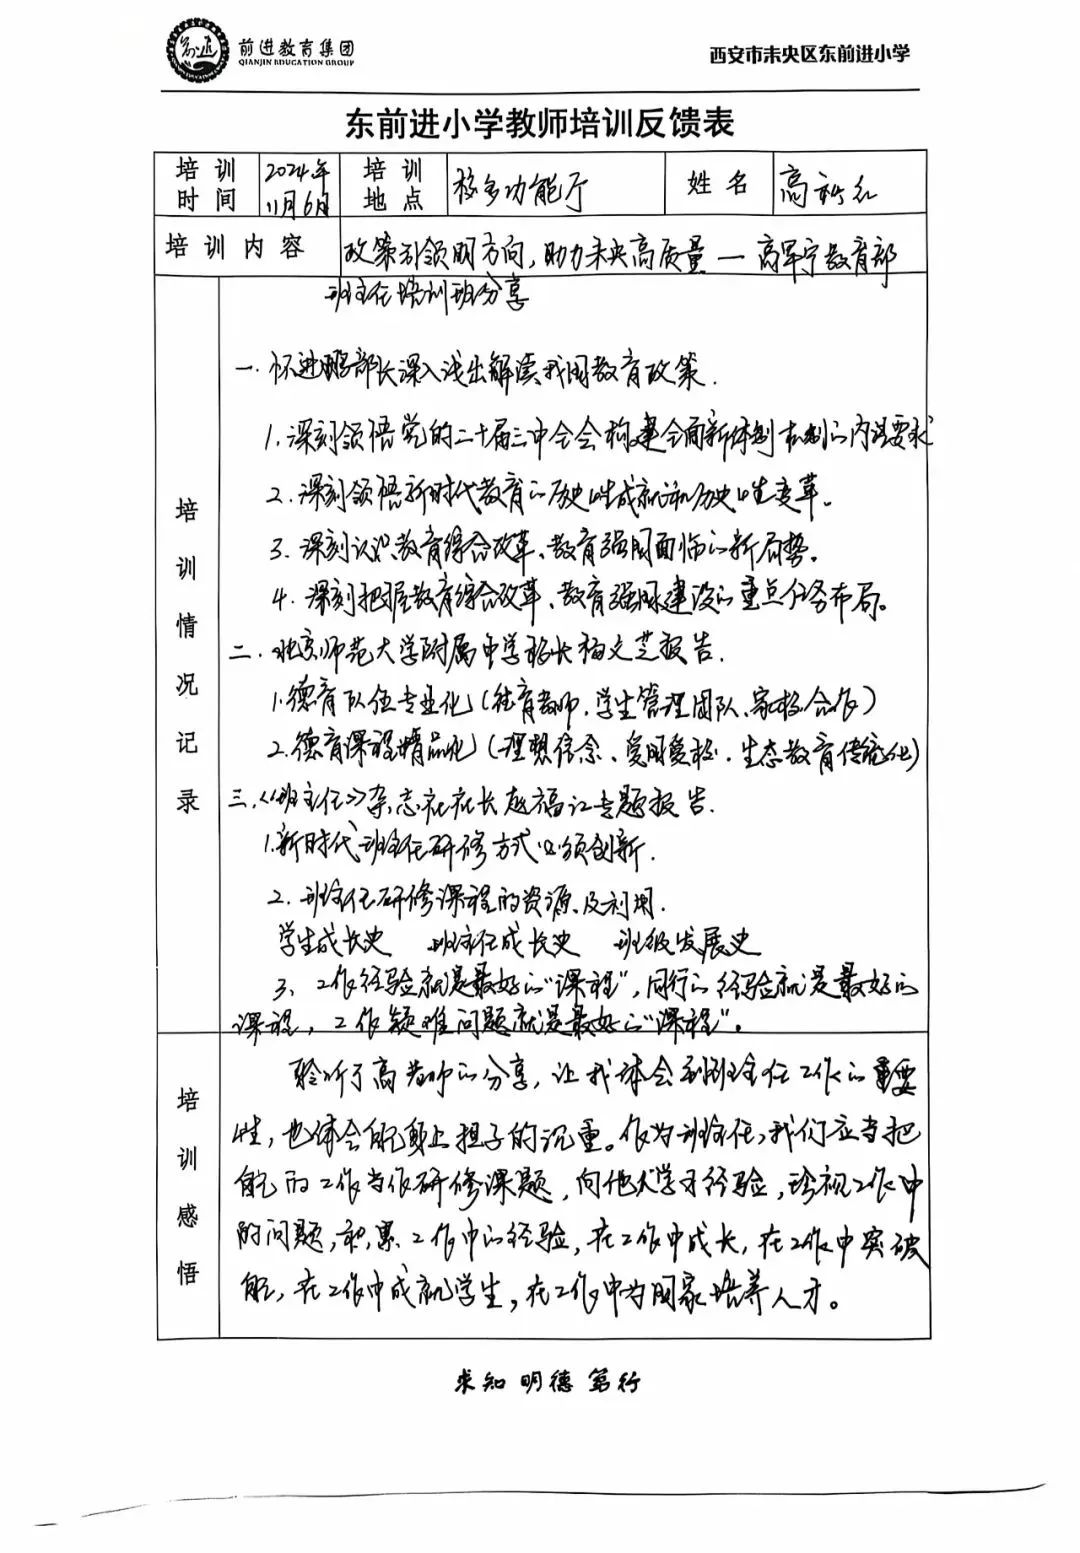 前进教育集团
QIANJIN EDUCATION GROUP
西安市未央区东前进小学
东前进小学教师培训反馈表
培训时间 2024年11月6日 培训地点 校多功能厅 姓名 高
培训内容 政策引领明方向,助力未央高质量—高军宁教育部
班主任培训班分享
培训情况记录
一.怀进鹏部长深入浅出解读我国教育政策.
1.深刻领悟党的二十届三中全会构建全面新体制机制的内涵要求
2.深刻领悟新时代教育的历史性成就和历史性变革。
3.深刻认识教育综合改革、教育强国面临的新局势。
4.深刻把握教育综合改革、教育强国建设的重点任务布局。
二.北京师范大学附属中学校长 文芝报告.
1.德育队伍专业化(德育教师.学生管理团队、家校合作)
2.德育课程精品化(理想信念、爱国爱校.生态教育传统化)
三.《班主任》杂志社社长赵福江专题报告.
1.新时代班主任研修方式必须创新.
2.班主任研修课程的资源及利用.
学生成长史 班主任成长史 班级发展史
3、工作经验就是最好的“课程”,同行的经验就是最好的
课程,工作疑难问题就是最好的“课程”。
培训感悟
聆听了高老师的分享,让我体会到班主任工作的重要
性,也体会自己身上担子的沉重。作为班主任,我们应当把
自己的工作当作研修课题,向他人学习经验,珍视工作中
的问题,积累工作中的经验,在工作中成长,在工作中突破
自己,在工作中成就学生,在工作中为国家培养人才。
求知 明德 笃行